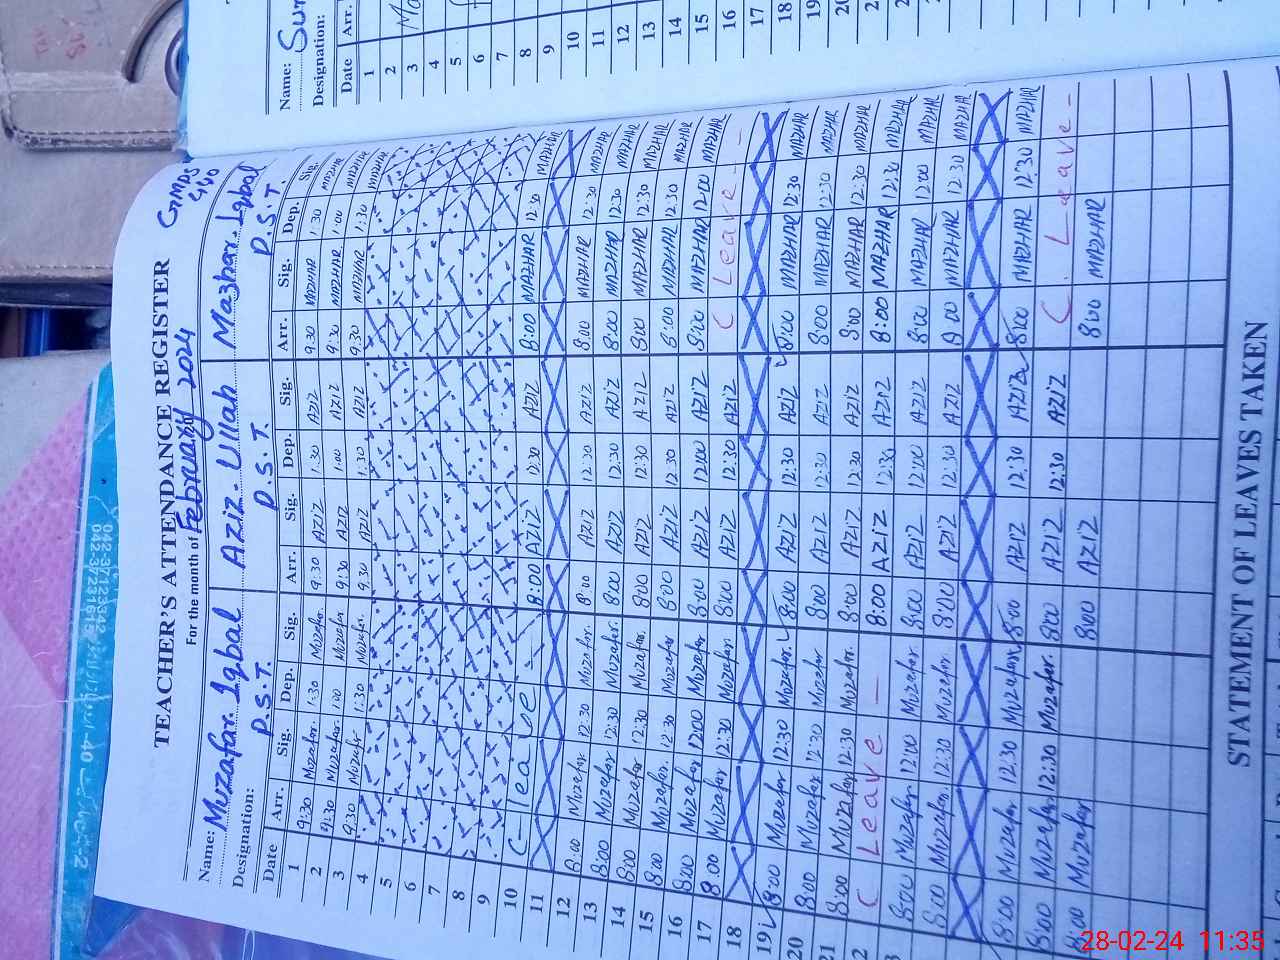 GMPS
440
TEACHER'S ATTENDANCE REGISTER
For the month of February 2024
Name: Muzafar Iqbal Aziz-Ullah Mazhar Iqbal
Designation: P.S.T. P.S.T. P.S.T
Date Arr. Sig. Dep. Sig. Arr. Sig. Dep. Sig. Arr. Sig. Dep. Sig.
1 9:30 Muzafar 1:30 Muzafar 9:30 AZIZ 1:30 AZIZ 9:30 MAZHAR 1:30 MAZHAR
2 9:30 Muzafar 1:00 Muzafar 9:30 AZIZ 1:00 AZIZ 9:30 MAZHAR 1:00 MAZHAR
3 9:30 Muzafar 1:30 Muzafar 9:30 AZIZ 1:30 AZIZ 9:30 MAZHAR 1:30 MAZHAR
4
5
6
7
8
9
10 C-leave 8:00 AZIZ 12:30 AZIZ 8:00 MAZHAR 12:30 MAZHAR
11
12 8:00 Muzafar 12:30 Muzafar 8:00 AZIZ 12:30 AZIZ 8:00 MAZHAR 12:30 MAZHAR
13 8:00 Muzafar 12:30 Muzafar 8:00 AZIZ 12:30 AZIZ 8:00 MAZHAR 12:30 MAZHAR
14 8:00 Muzafar 12:30 Muzafar 8:00 AZIZ 12:30 AZIZ 8:00 MAZHAR 12:30 MAZHAR
15 8:00 Muzafar 12:30 Muzafar 8:00 AZIZ 12:30 AZIZ 8:00 MAZHAR 12:30 MAZHAR
16 8:00 Muzafar 12:00 Muzafar 8:00 AZIZ 12:00 AZIZ 8:00 MAZHAR 12:00 MAZHAR
17 8:00 Muzafar 12:30 Muzafar 8:00 AZIZ 12:30 AZIZ C Leave -
18
19 8:00 Muzafar 12:30 Muzafar 8:00 AZIZ 12:30 AZIZ 8:00 MAZHAR 12:30 MAZHAR
20 8:00 Muzafar 12:30 Muzafar 8:00 AZIZ 12:30 AZIZ 8:00 MAZHAR 12:30 MAZHAR
21 8:00 Muzafar 12:30 Muzafar 8:00 AZIZ 12:30 AZIZ 8:00 MAZHAR 12:30 MAZHAR
2 C Leave - 8:00 AZIZ 12:30 AZIZ 8:00 MAZHAR 12:30 MAZHAR
8:00 Muzafar 12:00 Muzafar 8:00 AZIZ 12:00 AZIZ 8:00 MAZHAR 12:00 MAZHAR
8:00 Muzafar 12:30 Muzafar 8:00 AZIZ 12:30 AZIZ 8:00 MAZHAR 12:30 MAZHAR
8:00 Muzafar 12:30 Muzafar 8:00 AZIZ 12:30 AZIZ 8:00 MAZHAR 12:30 MAZHAR
8:00 Muzafar 12:30 Muzafar 8:00 AZIZ 12:30 AZIZ C. Leave -
8:00 Muzafar 8:00 AZIZ 8:00 MAZHAR
STATEMENT OF LEAVES TAKEN
Name:
Designation:
Date Arr.
1
2
3
4
5
6
7
8
9
10
11
12
13
14
15
16
17
18
19
042-37123342
042-37231615
28-02-24 11:35